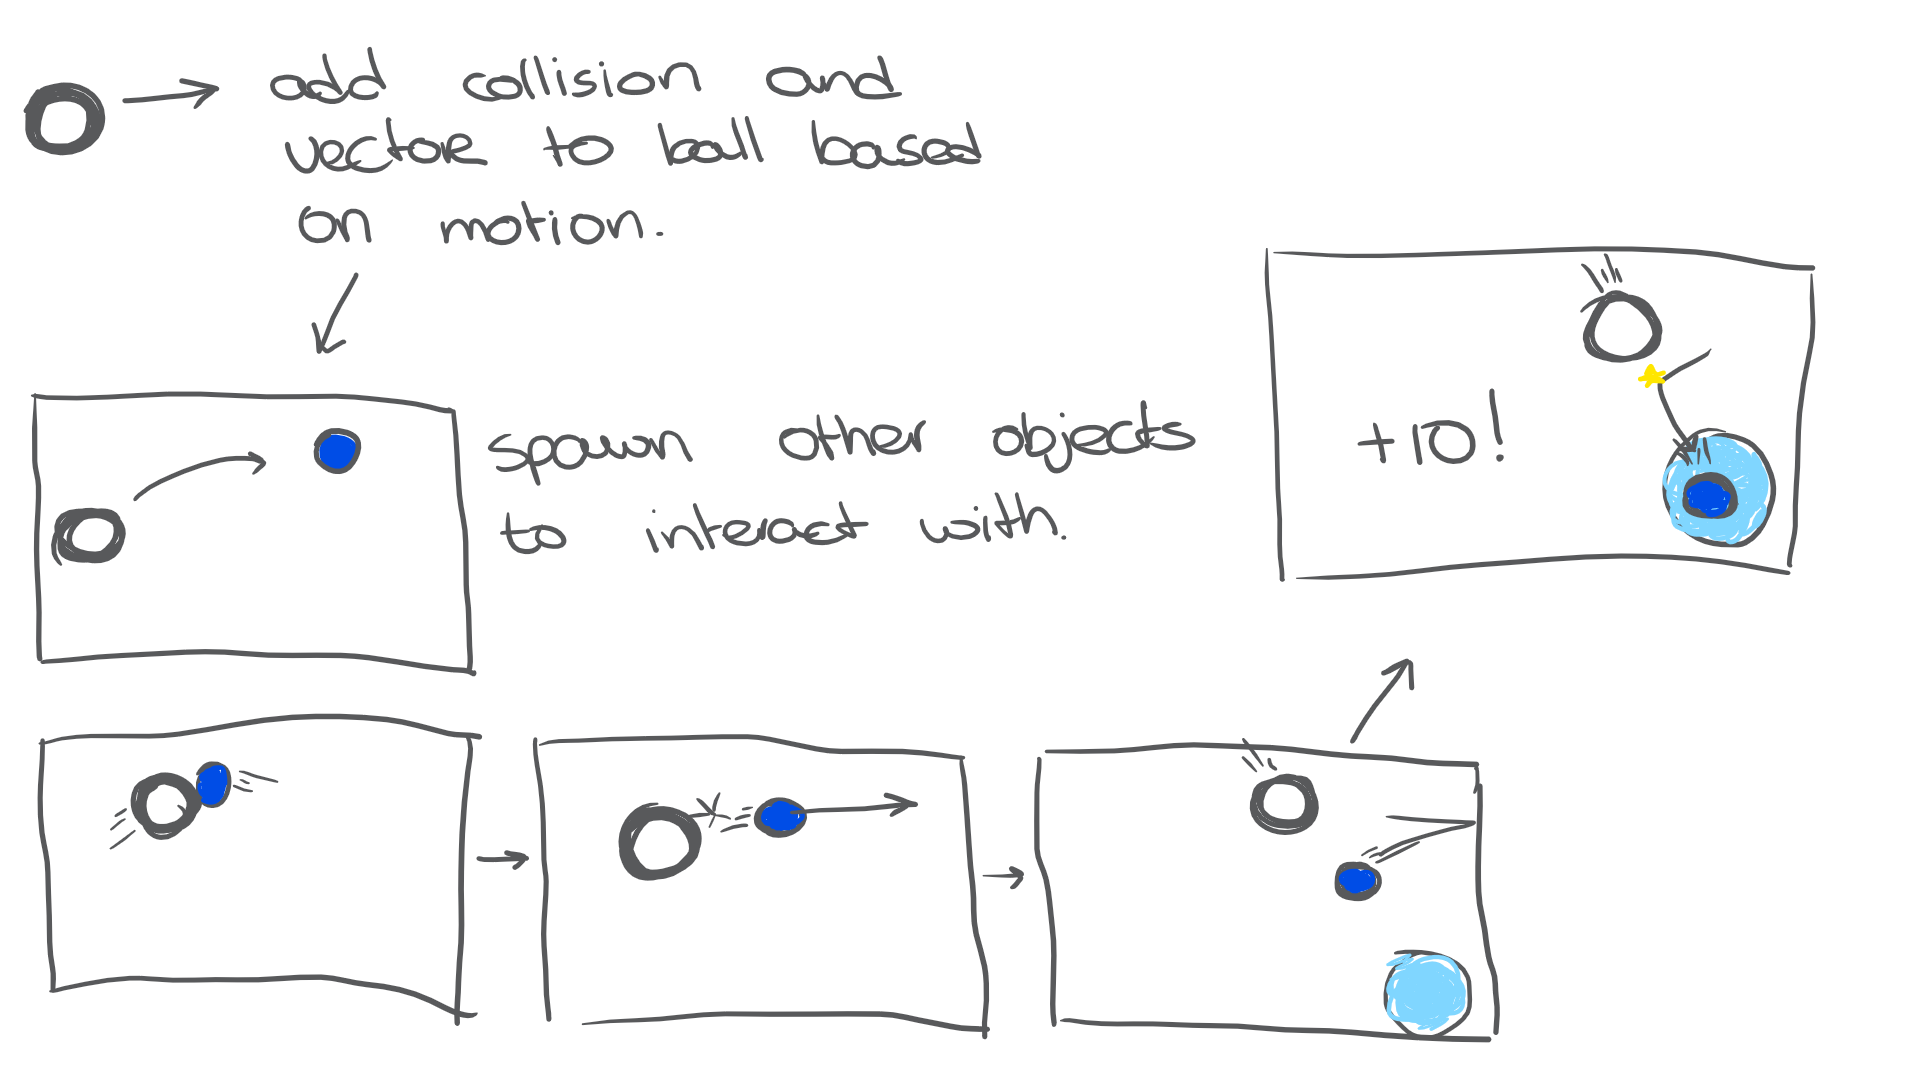 add collision and
vector to ball based
on motion.
spawn other objects
to interact with.
+10!